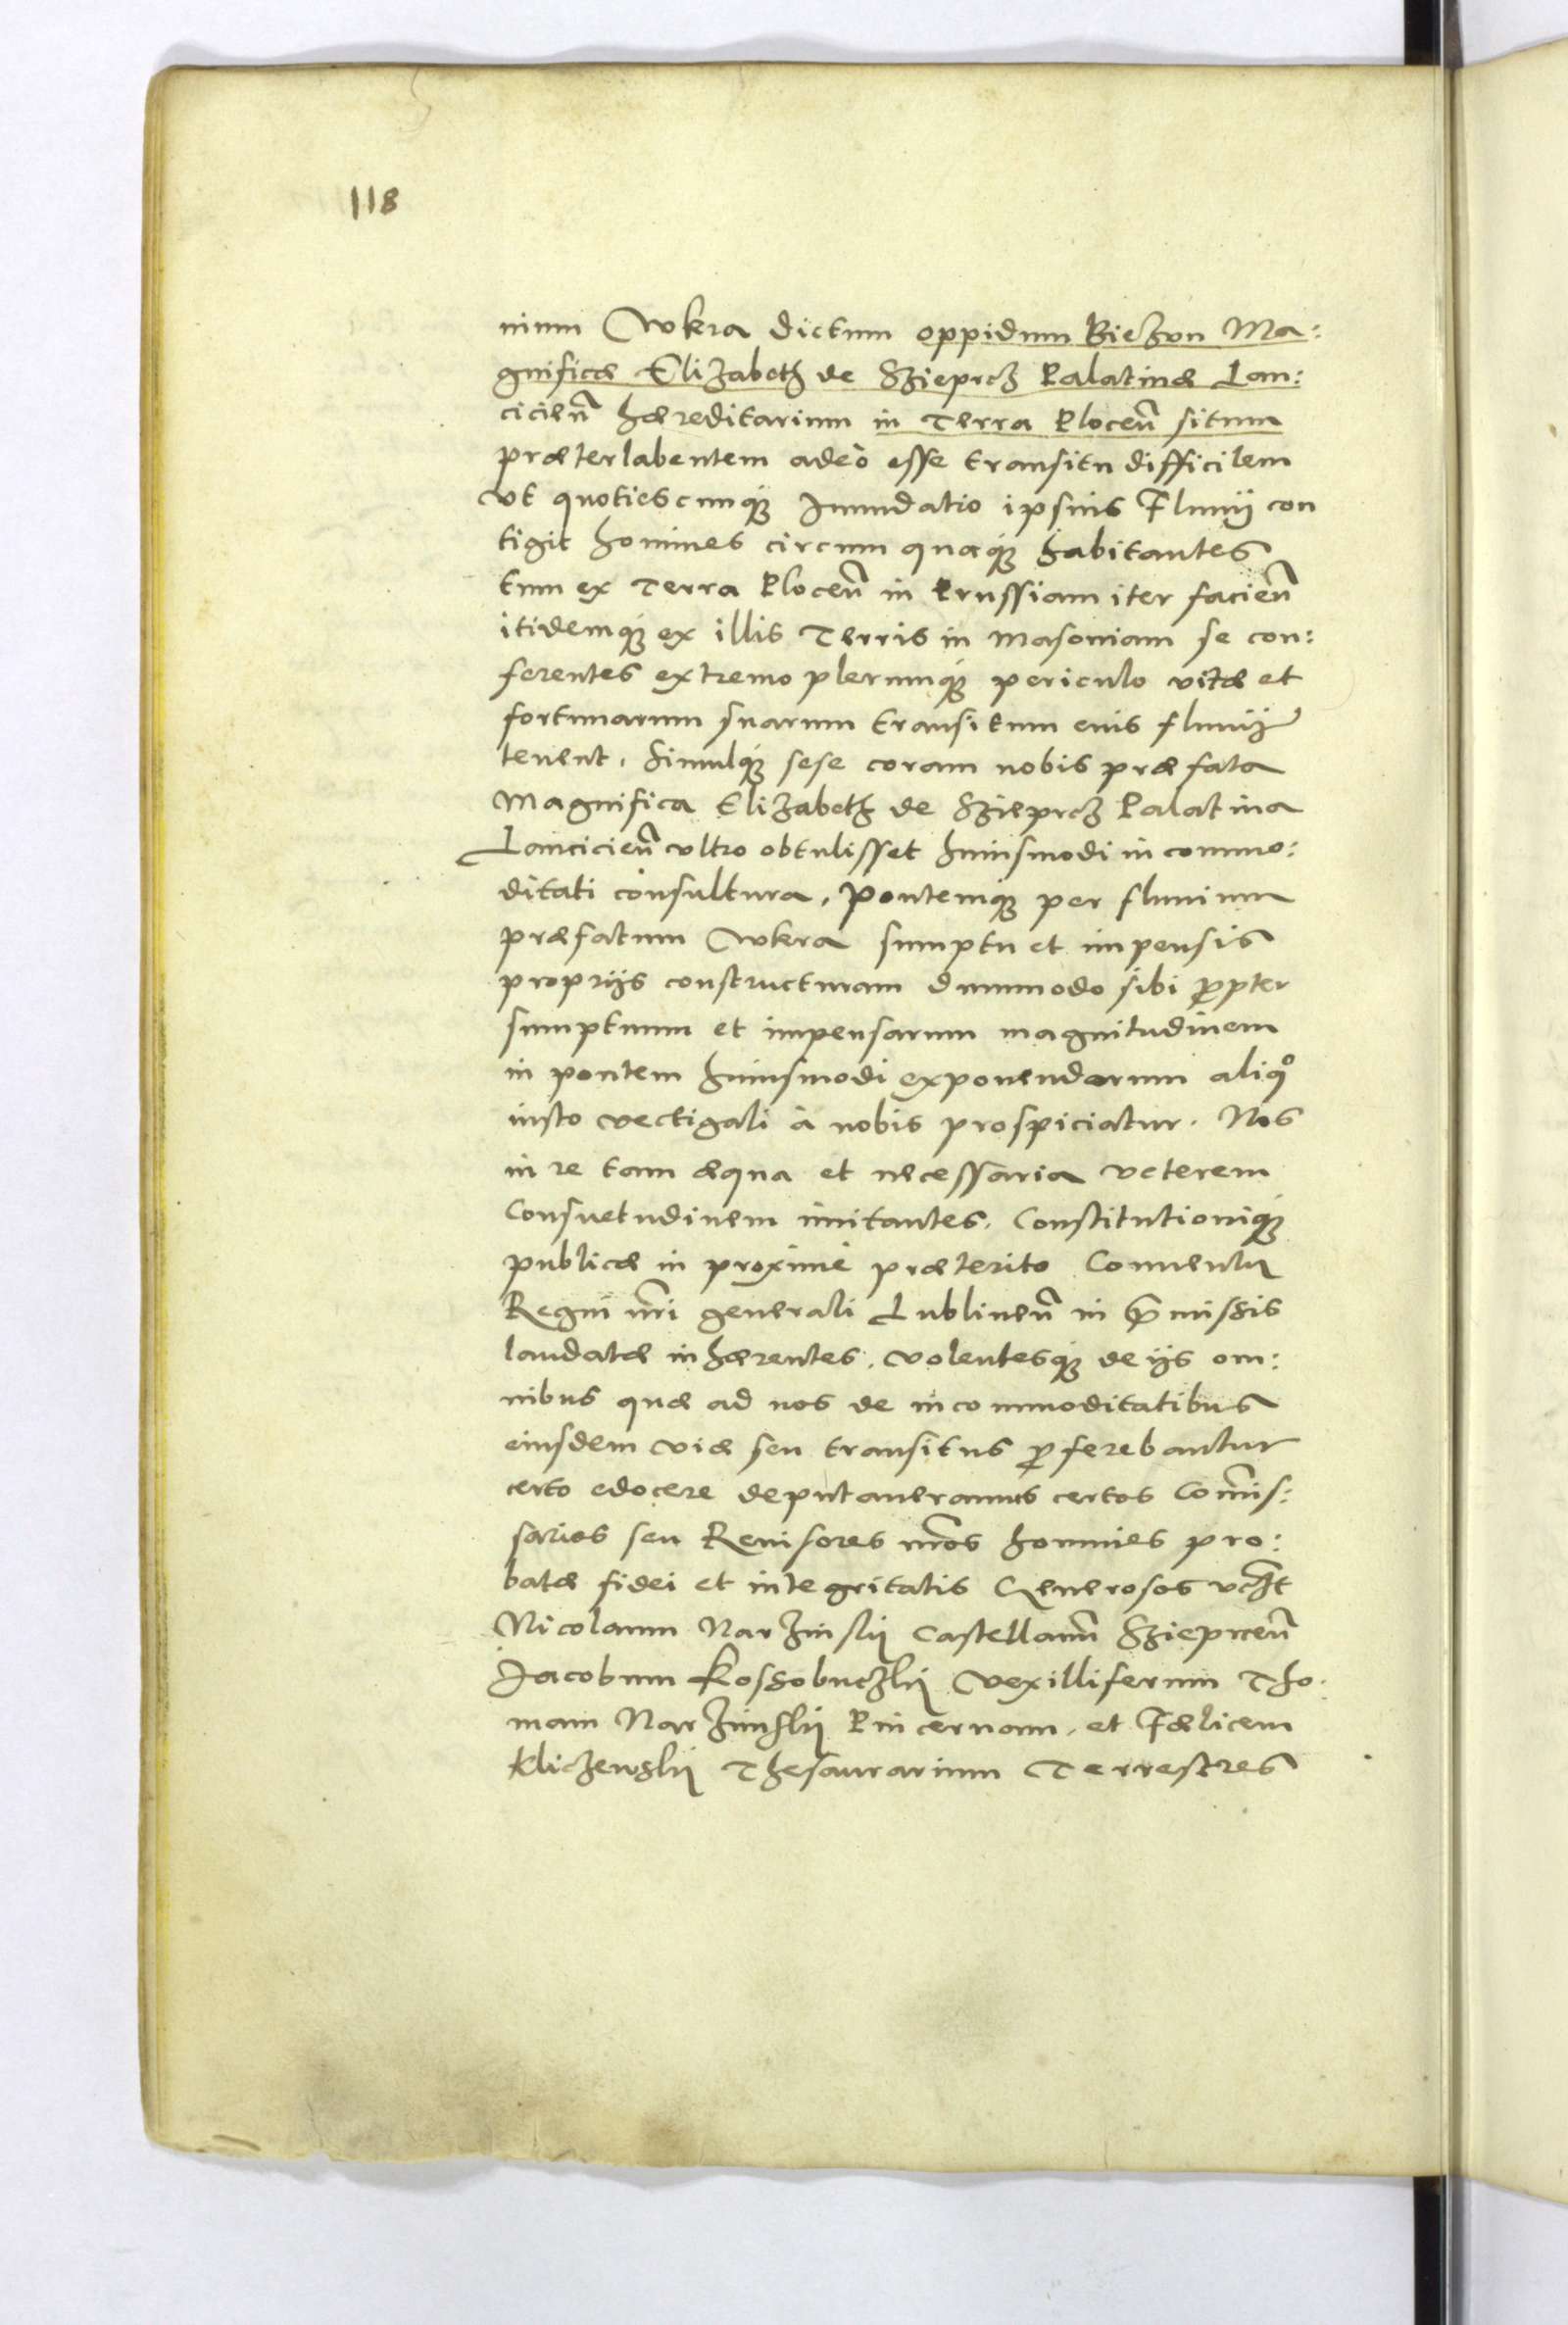 118
uium Wkra dictum oppidum Biezon Ma:
gnificæ Elizabeth de Szieprcz Palatinæ Lan:
cicieñ hæreditarium in Terra Ploceñ situm
præterlabentem adeò esse transitu difficilem
vt quotiescunq́ȝ Inundatio ipsius Fluuij con
tigit homines circum quaq́ȝ habitantes
tum ex Terra Ploceñ in Prussiam iter facieñ
itidemq́ȝ ex illis Terris in Masouiam se con:
ferentes extremo plerunq́ȝ periculo vitæ et
fortunarum suarum transitum eius fluuij
tenent. Simulq́ȝ sese coram nobis præfata
Magnifica Elizabeth de Szieprcz Palatina
Lancicieñ vltro obtulisset huiusmodi incommo:
ditati consultura, Pontemqȝ per fluuium
præfatum Wkra sumptu et impensis
proprijs constructuram dummodo sibi ꝓpter
sumptuum et impensarum magnitudinem
in pontem huiusmodi exponendarum aliqͦ
iusto vectigali à nobis prospiciatur. Nos
in re tam æqua et necessaria veterem
Consuetudinem imitantes. Constitutioniq́ȝ
publicæ in proximè præterito Conuentu
Regni nr̃i generali Lublineñ in p̃missis
laudatæ inhærentes. volentesq́ȝ de ijs om:
nibus quæ ad nos de incommoditatibus
eiusdem viæ seu transitus ꝓferebantur
certo edocere deputaueramus certos Com̃is:
sarios seu Reuisores nr̃os homines pro:
batæ fidei et integritatis Generosos vcz̃t
Nicolaum Narzinskij Castellanũ Szieprceñ
Jacobum Kossobuczkij Vexilliferum Tho
mam Narzimskij Pincernam, et Fælicem
Kliczewskij Thesaurarium Terrestres